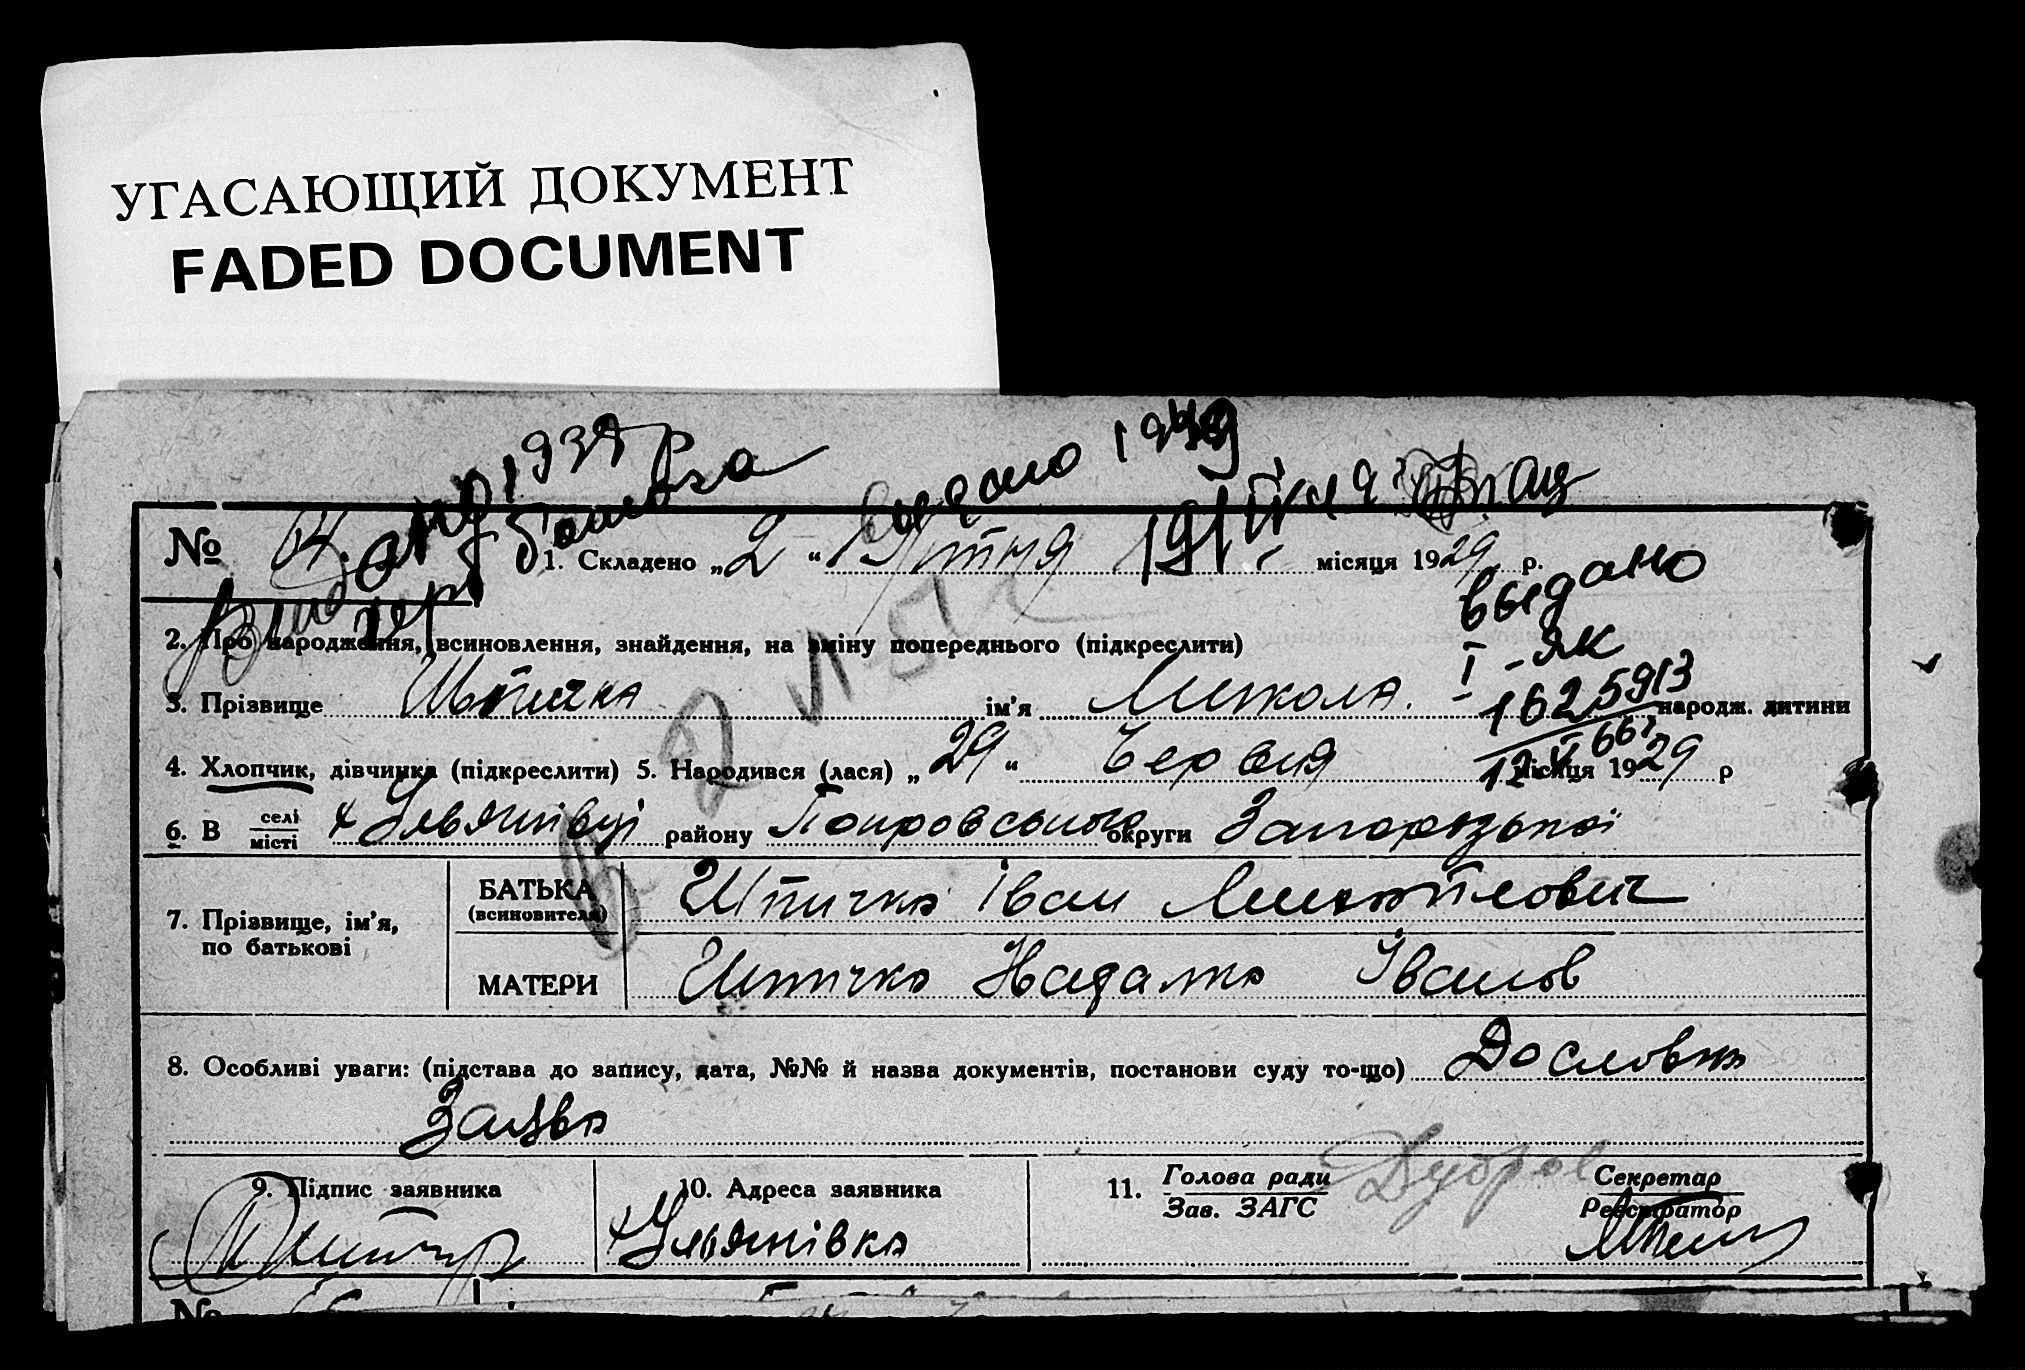 УГАСАЮЩИЙ ДОКУМЕНТ
FADED DOCUMENT
1939
выдано 1949
№ 64.
1. Складено „2“ місяця 1929 р.
выдано
2. Про народження, всиновлення, знайдення, на зміну попереднього (підкреслити)
I-ЯК
1625913
3. Прізвище Шпичка ім’я Микола. народж. дитини
4. Хлопчик, дівчинка (підкреслити) 5. Народився (лася) „29“ Червня місяця 1929 р
6. В селі
місті
х Ульянівці району Покровського округи Запорізької
7. Прізвище, ім’я,
по батькові
БАТЬКА
(всиновителя)
Шпичка Іван Михайлович
МАТЕРИ
Шпичка Надалка Іванов
8. Особливі уваги: (підстава до запису, дата, №№ й назва документів, постанови суду то-що) Дословна
Заява
9. Підпис заявника
10. Адреса заявника
х Ульянівка
11. Голова ради
Зав. ЗАГС
Секретар
Реєстратор
№